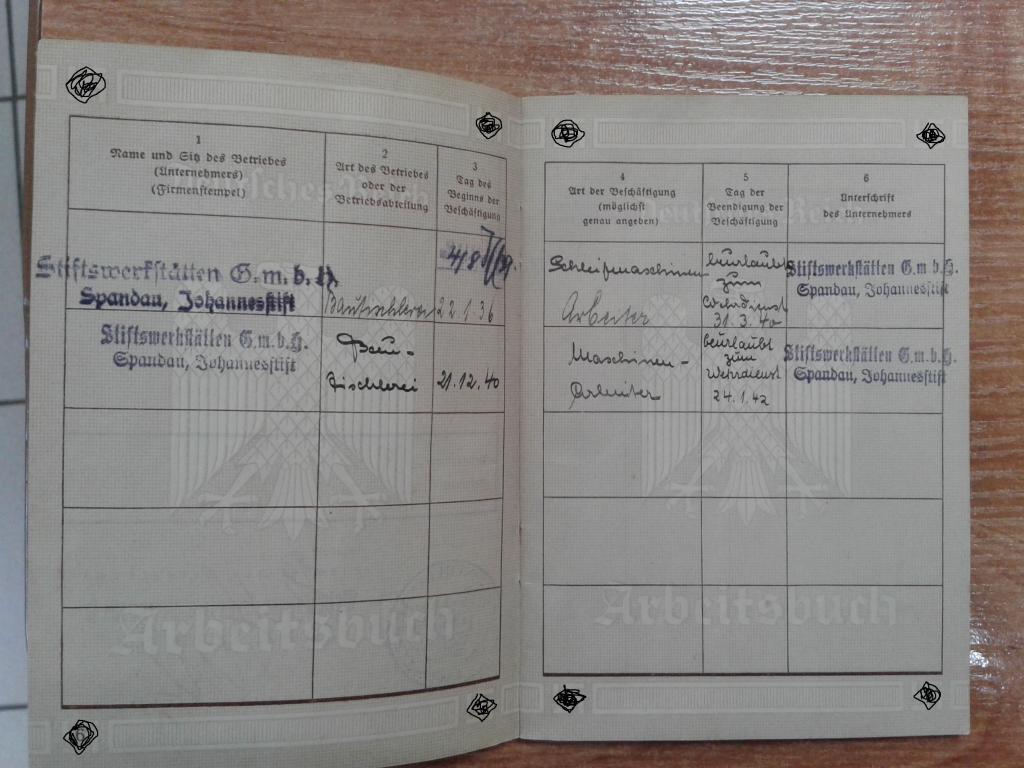 1
Name und Sitz des Betriebes
(Unternehmers)
(Firmenstempel)
2
Art des Betriebes
oder der
Betriebsabteilung
3
Tag des
Beginns der
Beschäftigung
Stiftswerkstätten G.m.b.H.
Spandau, Johannesstift
Bautischlerei
22.1.36
Stiftswerkstätten G.m.b.H.
Spandau, Johannesstift
Bau-
tischlerei
21.12.40
Arbeitsbuch
4
Art der Beschäftigung
(möglichst
genau angeben)
5
Tag der
Beendigung der
Beschäftigung
6
Unterschrift
des Unternehmers
Schleifmaschinen
Arbeiter
beurlaubt
zum
Wehrdienst
31.3.40
Stiftswerkstätten G.m.b.H.
Spandau, Johannesstift
Maschinen-
Arbeiter
beurlaubt
zum
Wehrdienst
24.1.42
Stiftswerkstätten G.m.b.H.
Spandau, Johannesstift
Arbeitsbuch